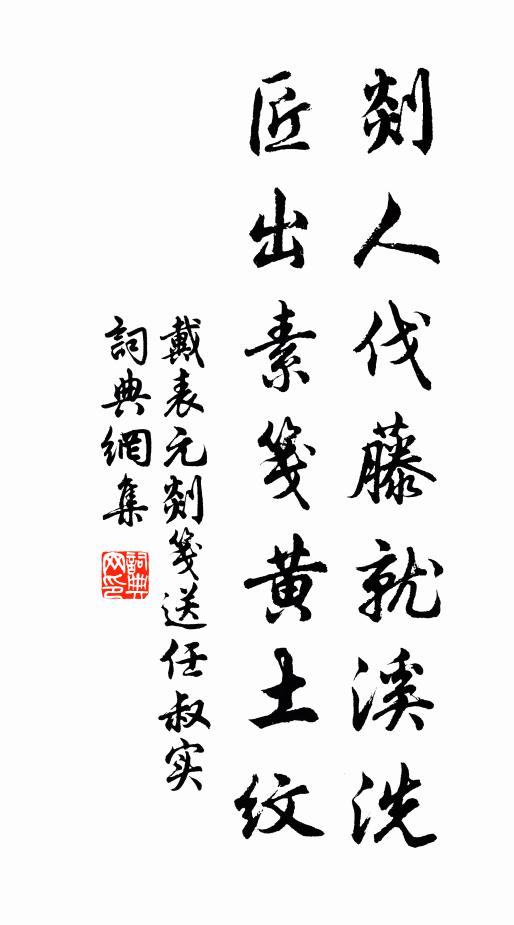 剡人伐藤就溪洗
匠出素笺黄土纹
戴表元剡笺送任叔实
詞典網集
詞典网印